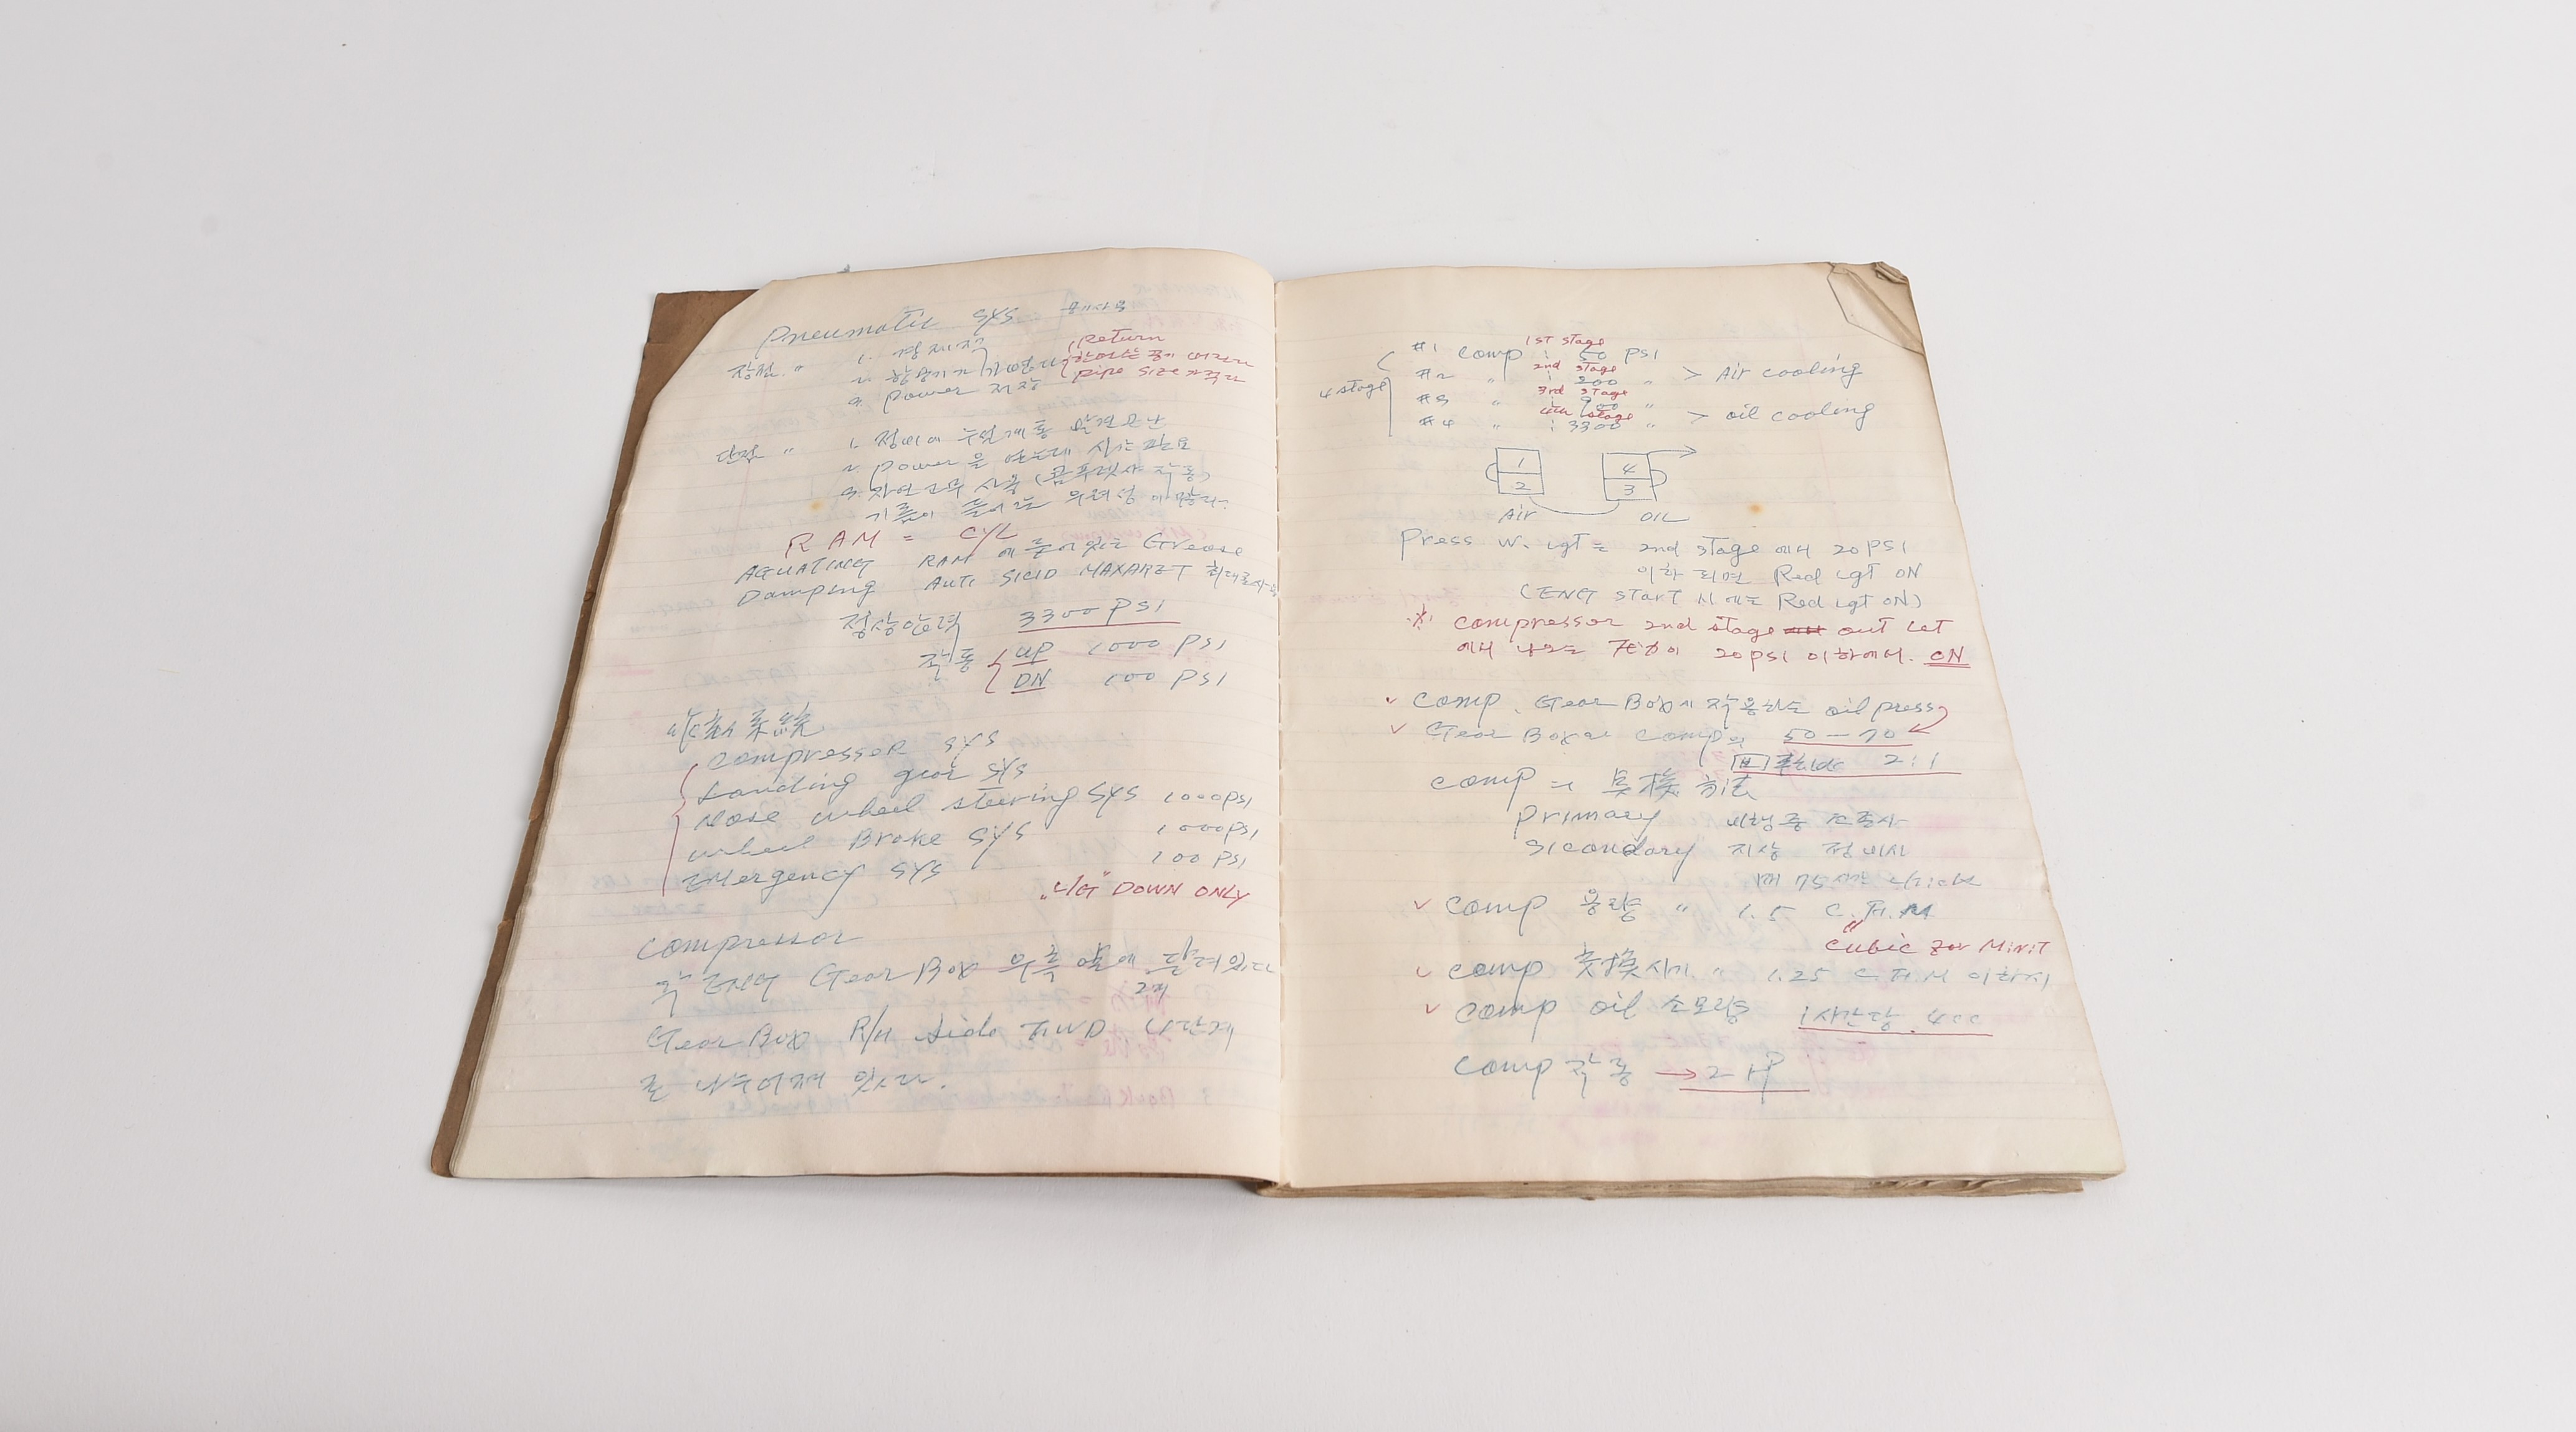 Pneumatic SYS
장점 " 1. 경제적
Return
2. 항공기가 가볍다
pipe size 가 작다
3. Power 저장
단점 " 1. 정비에 누설계통 발견 곤난
2. Power 을 얻는데 시간 필요
3. 자연고무 사용 (콤푸렛샤 작동)
기름이 들어가는 우려성이
RAM = CYL
AGUATING RAM 에 들어있는 Grease
Damping ANTI SICID MAXARET
정상압력 3300 PSI
작동 UP 1000 PSI
DN 100 PSI
compressor SYS
Landing gear SYS
Nose wheel steering SYS 1000 PSI
wheel Brake SYS 1000 PSI
Emergency SYS 100 PSI
"L/G" DOWN ONLY
compressor
각 ENG Gear Box 우측 앞에 달려있다
2개
Gear Box R/H side FWD 4단계
로 나누어져 있다.
1st stage
#1 comp : 50 PSI
2nd stage
#2 " : 200 " > Air cooling
3rd stage
4 stage #3 " : 900 "
4th stage > oil cooling
#4 " : 3300 "
1 4
2 3
Air OIL
Press W. LgT는 2nd stage 에서 20 PSI
이하 되면 Red LgT ON
(ENG START 시에는 Red LgT ON)
※ compressor 2nd stage out Let
에서 나오는 공기 20 PSI 이하에서. ON
✓ comp. Gear Box에 작용하는 oil press
✓ Gear Box와 comp의 50 — 70
2:1
comp 方法
primary 비행중 조종사
sicondary 지상 정비사
✓ comp 용량 " 1.5 C.F.M
cubic Min:T
✓ comp 交換시기 " 1.25 C.F.M 이하시
✓ comp oil 소모량 1시간당. 4cc
comp 작동 → 2 HP